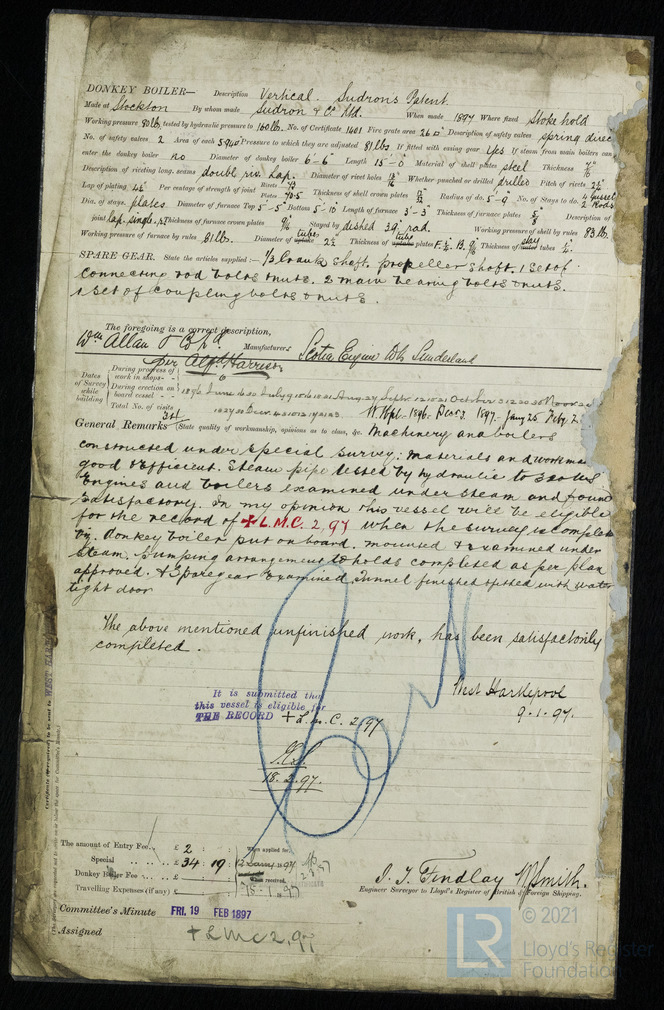 DONKEY BOILER— Description Vertical. Sudrons Patent
Made at Stockton By whom made Sudron & Co Ltd. When made 1897 Where fixed Stokehold
Working pressure 80 lb tested by hydraulic pressure to 160 lbs. No. of Certificate 1601 Fire grate area 26 Description of safety valves spring direc
No. of safety valves 2 Area of each 5.940 Pressure to which they are adjusted 81 lbs If fitted with easing gear yes If steam from main boilers can
enter the donkey boiler no Diameter of donkey boiler 6-6" Length 15-0" Material of shell plates steel Thickness
Description of riveting long. seams double riv. Lap. Diameter of rivet holes Whether punched or drilled drilled Pitch of rivets
Lap of plating Per centage of strength of joint Rivets Plates 70.5 Thickness of shell crown plates Radius of do. 5-9" No. of Stays to do. 4 Gusset
Dia. of stays. plates Diameter of furnace Top 5-5" Bottom 5-10" Length of furnace 3-3" Thickness of furnace plates 5/8 Description of
joint lap. single. r. Thickness of furnace crown plates 9/16 Stayed by dished 39" rad. Working pressure of shell by rules 83 lb.
Working pressure of furnace by rules 81 lbs. Diameter of tubes Thickness of tube plates Thickness of stay
SPARE GEAR. State the articles supplied:— 1/3 Crank Shaft. propeller shaft. 1 set of
connecting rod bolts & nuts. 2 main bearing bolts & nuts.
1 set of coupling bolts & nuts.
The foregoing is a correct description,
Wm Allan & Co Ld Manufacturer. Scotia Engine Wks Sunderland
per Alfd Harrison
Dates of Survey while building
During progress of work in shops - -
During erection on board vessel - - -
Total No. of visits 34
W Hpl. 1896. Dec 3. 1897- Jany 25 Feby 2.
General Remarks (State quality of workmanship, opinions as to class, &c. Machinery and boilers
constructed under Special Survey: Materials and workman
good & efficient. Steam pipe tested by hydraulic to
Engines and boilers examined under steam and found
satisfactory. In my opinion this vessel will be eligible
for the record of ✠ L.M.C. 2.97 when the survey is complete
viz. donkey boiler put on board. mounted & examined under
steam. Pumping arrangement to holds completed as per plan
approved. & Spare gear examined, Tunnel finished & fitted with water
tight door
The above mentioned unfinished work, has been satisfactorily
completed.
West Hartlepool
9.1.97.
It is submitted that
this vessel is eligible for
THE RECORD + L.M.C. 2.97
18.2.97.
The amount of Entry Fee . . £ 2 When applied for,
Special . . . . £ 34 : 19
Donkey Boiler Fee . . . £ When received,
Travelling Expenses (if any) £ 15.1.97
J. T. Findlay W Smith.
Engineer Surveyor to Lloyd's Register of British & Foreign Shipping.
Committee's Minute FRI. 19 FEB 1897
Assigned + LMC 2.97
LR © 2021
Lloyd's Register
Foundation